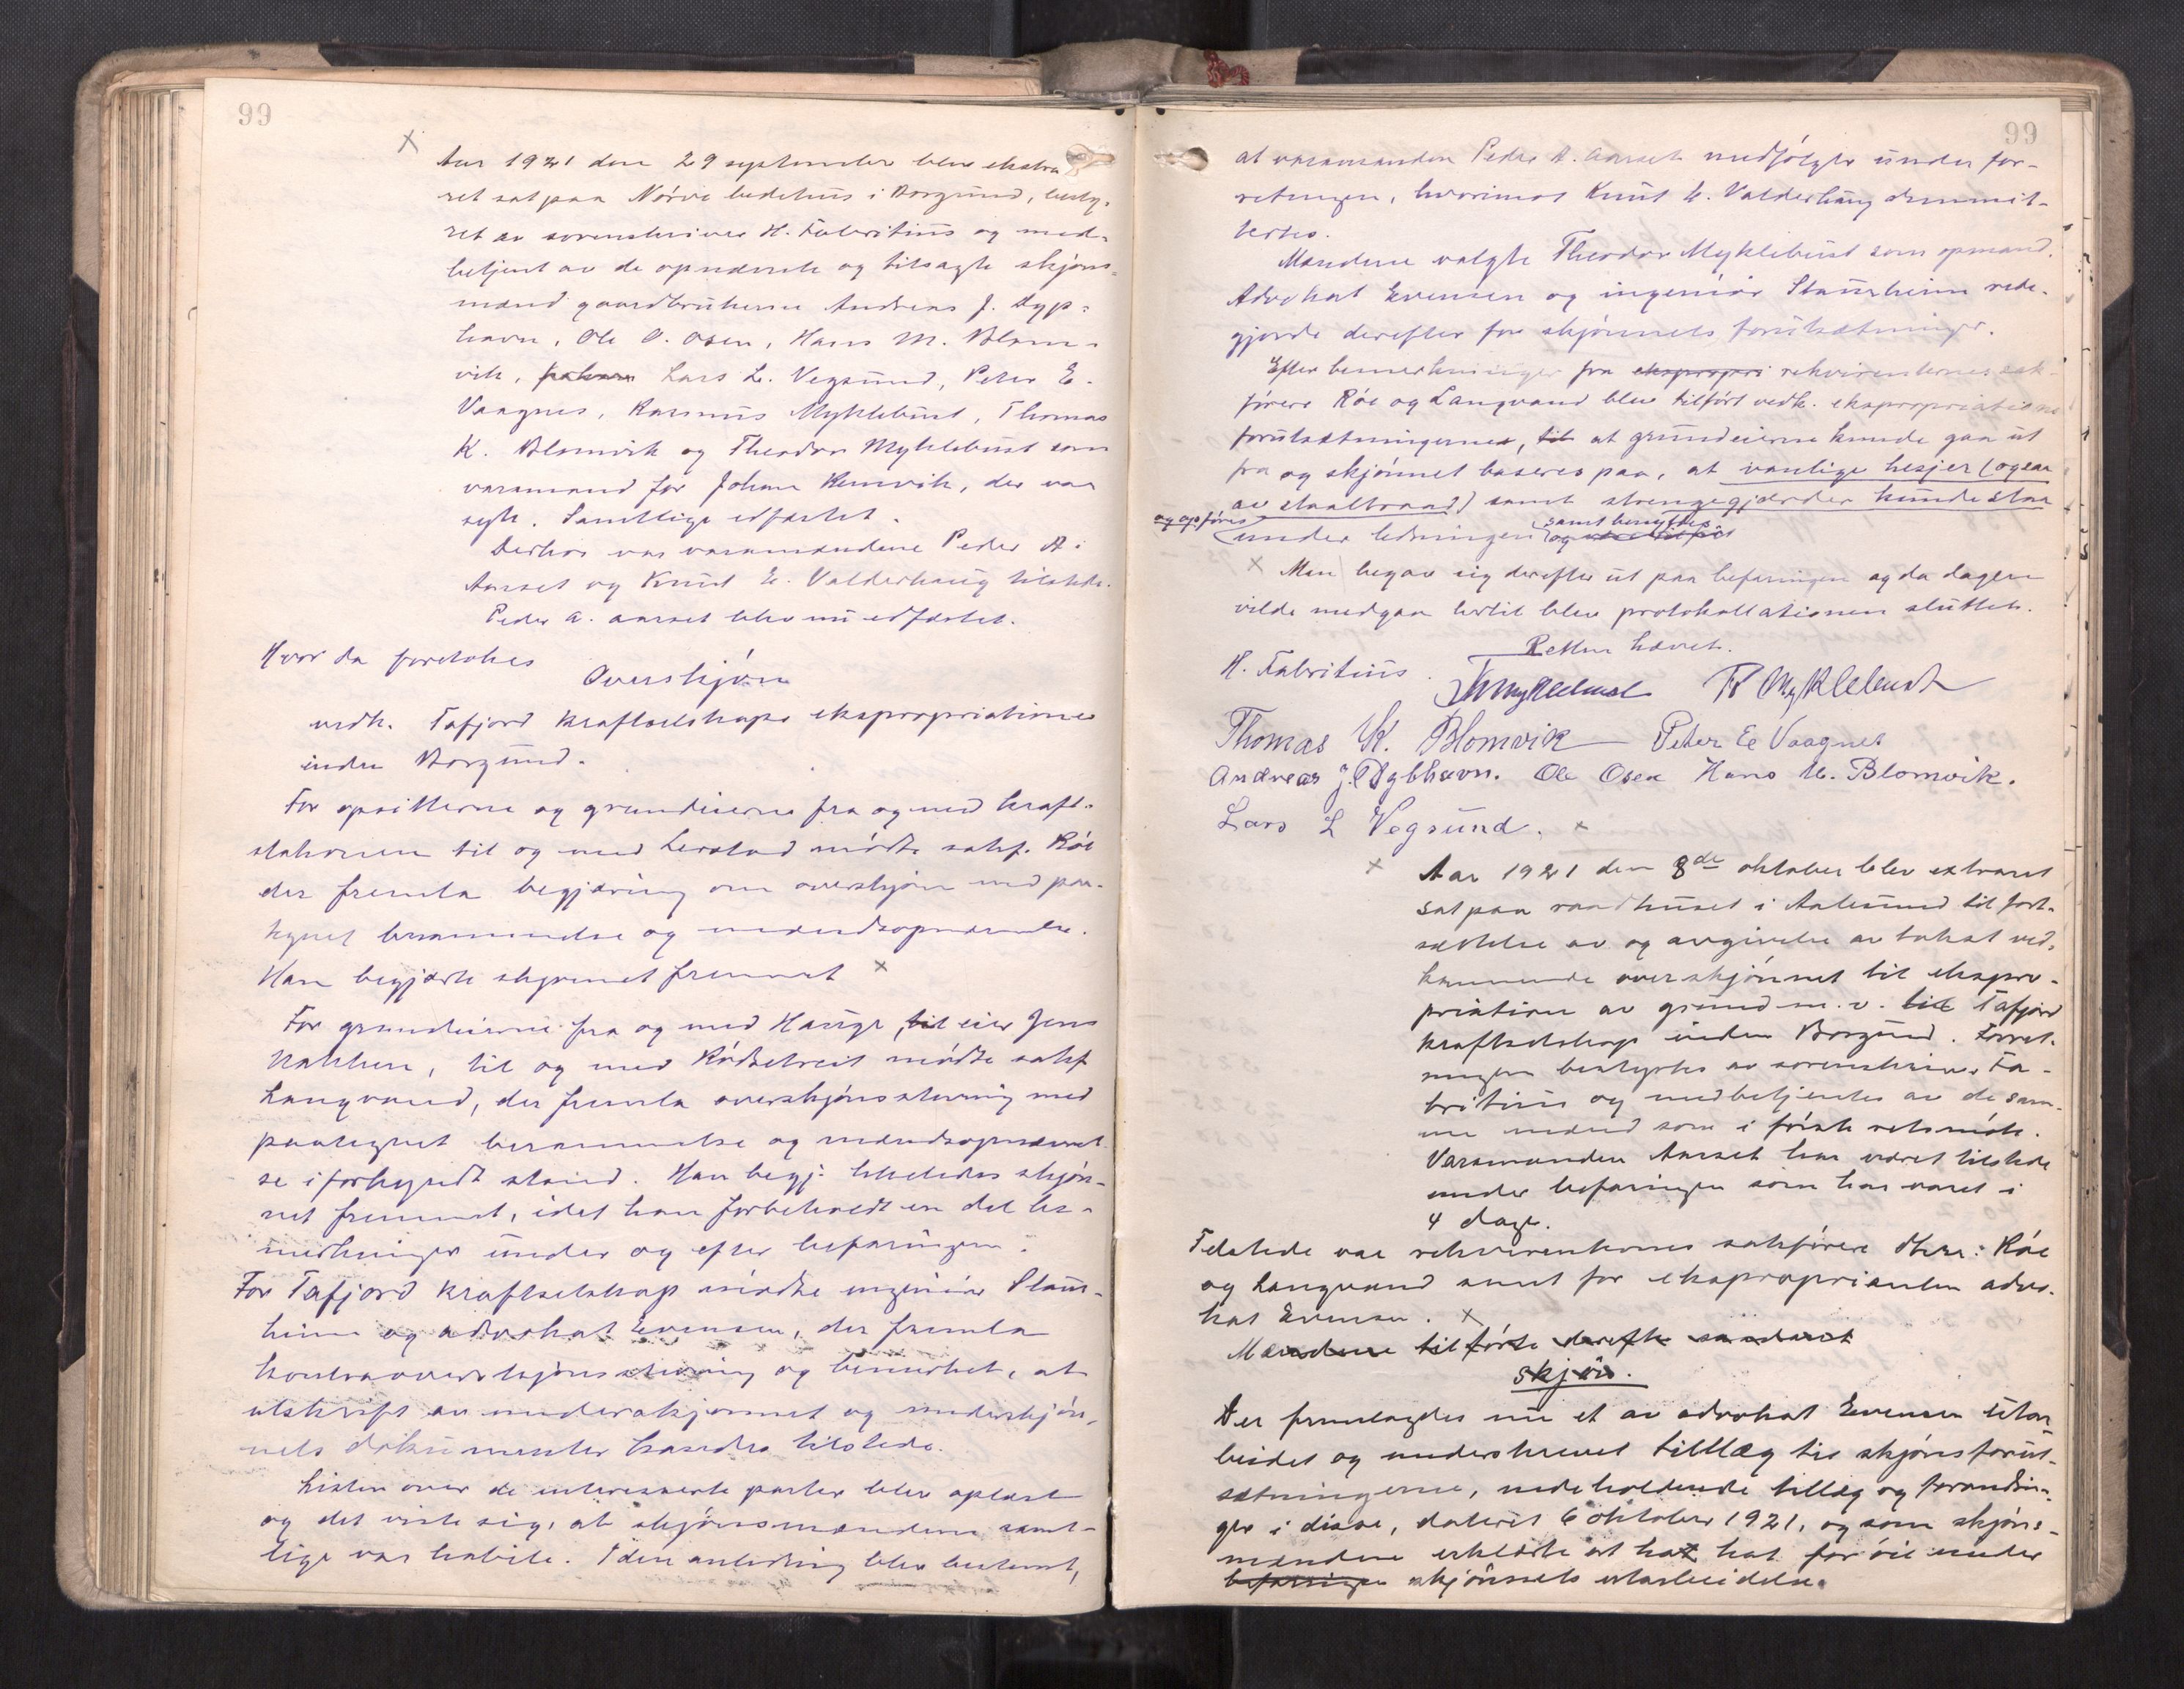 99
× Aar 1921 den 29 september blev ekstra
ret sat paa Nørve bedehus i Borgund, besty-
ret av sorenskriver H. Fabritius og med-
betjent av de opnævnte og tilsagte skjøns-
mænd gaardbrukerne Andreas J. Dyp-
havn, Ole O. Osen, Hans M. Blom-
vik, Lars L. Vegsund, Peter E.
Vaagnes, Rasmus Myklebust, Thomas
K. Blomvik og Theodor Myklebust som
varamand for Johan Remvik, der var
syk. Samtlige edfæstet.
Derhos var varamændene Peder A.
Aarset og Knut E. Valderhaug tilstede.
Peder A. Aarset blev nu edfæstet.
Hvor da foretokes
Overskjøn
vedk. Tafjord kraftselskaps ekspropriationer
inden Borgund.
For opsitterne og grundeierne fra og med kraft-
stationen til og med Lerstad mødte sakf. Röe
der fremla begjæring om overskjøn med paa-
tegnet berammelse og mændsopnævnelse.
Han begjærte skjønnet fremmet ×
For grundeierne fra og med Hauge, til eier Jens
Nakken, til og med Rødsetreit mødte sakf
Langvand, der fremla overskjønsstevning med
paategnet berammelse og mændsopnævnel-
se i forkyndt stand. Han begj. likeledes skjøn-
net fremmet, idet han forbeholdt en del be-
merkninger under og efter befaringen.
For Tafjord kraftselskap mødte ingeniør Staur-
heim og advokat Evensen, der fremla
kontraoverskjønsstevning og bemerket, at
utskrift av underskjønnet og underskjøn-
nets dokumenter havdes tilstede.
Listen over de interesserte parter blev oplæst
og det viste sig, at skjønsmændene samt-
lige var habile. I den anledning blev bestemt,
99
at varamanden Peder A. Aarset medfølger under for-
retningen, hvorimot Knut E. Valderhaug demmit-
tertes.
Mændene valgte Theodor Myklebust som opmand.
Advokat Evensen og ingeniør Staurheim rede-
gjorde derefter for skjønnets forutsætninger.
Efter bemerkninger fra ekspropri rekvirenternes sak-
førere Röe og Langvand blev tilført vedk. ekspropriations
forutsætningerne, til at grundeierne kunde gaa ut
fra og skjønnet baseres paa, at vanlige hesjer (ogsaa
av staaltraad) samt strengegjærder kunde staa
og opføres under ledningen samt benyttes
× Man begav sig derefter ut paa befaringen og da dagen
vilde medgaa hertil blev protokollationen sluttet.
Retten hævet.
H. Fabritius. Th Myklebust R Myklebust
Thomas K. Blomvik Peter E Vaagnes
Andreas J. Dybhavn. Ole Osen Hans M. Blomvik.
Lars L Vegsund. ×
× Aar 1921 den 8de oktober blev extraret
sat paa raadhuset i Aalesund til fort-
sættelse av og avgivelse av takst ved-
kommende overskjønnet til ekspro-
priation av grund m.v. til Tafjord
kraftselskap inden Borgund. Forret-
ningen bestyrtes av sorenskriver Fa-
britius og medbetjentes av de sam-
me mænd som i første retsmøte.
Varamanden Aarset har været tilstede
under befaringen som har varet i
4 dage.
Tilstede var rekvirenternes sakførere dhrr: Röe
og Langvand samt for eksproprianten advo-
kat Evensen. ×
Mændene tilførte derefter saadant
skjøn.
Der fremlagdes nu et av advokat Evensen utar
beidet og underskrevet tillæg til skjønsforut-
sætningerne, indeholdende tillæg og forandrin-
ger i disse, dateret 6 oktober 1921, og som skjøns-
mændene erklærte at ha hat for öie under
befaringen skjønnets utarbeidelse.